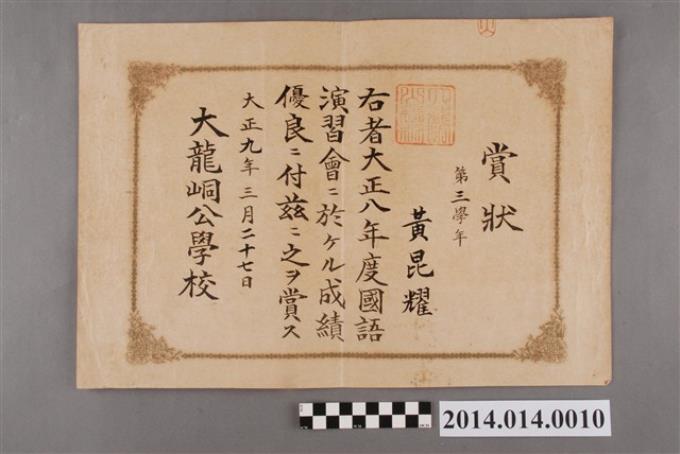 賞狀
第三學年
黃昆耀
右者大正八年度國語
演習會ニ於ケル成績
優良ニ付茲ニ之ヲ賞ス
大正九年三月二十七日
大龍峒公學校
2014.014.0010